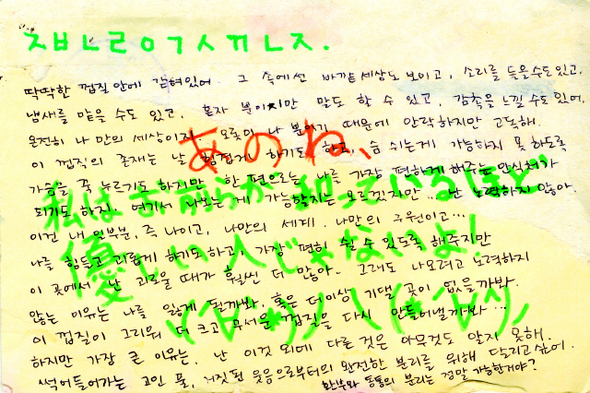 ㅈㅂㄴㄹㅇㄱㅅㄲㄴㅈ.
딱딱한 껍질 안에 갇혀있어. 그 속에선 바깥세상도 보이고, 소리를 들을수도 있고,
냄새를 맡을 수도 있고, 혼자 뿐이지만 말도 할 수 있고, 감촉을 느낄 수도 있어.
온전히 나 만의 세상이지. 오롯이 나 뿐이기 때문에 안락하지만 고독해.
이 껍질의 존재는 날 힘겹게 하기도 하고, 숨 쉬는게 가능하지 못 하도록
가슴을 꾹 누르기도 하지만, 한 편으로는 나를 가장 편하게 해주는 안식처가
되기도 하지. 여기서 나오는게 가능할지는 모르겠지만.. 난 노력하지 않아.
이건 내 일부분, 즉 나이고, 나만의 세계. 나만의 구원이고…
나를 힘들고 괴롭게 하기도 하고, 가장 편히 쉴 수 있도록 해주지만
이 곳에서 난 괴로울 때가 훨씬 더 많아. 그래도 나오려고 노력하지
않는 이유는 나를 잃게 될까봐, 혹은 더이상 기댈 곳이 없을까봐.
이 껍질이 그리워 더 크고 무서운 껍질을 다시 만들어낼까봐…
하지만 가장 큰 이유는, 난 이것 외에 다른 것은 아무것도 알지 못해.
썩어들어가는 고인 물, 거짓된 웃음으로부터의 완전한 분리를 위해 달리고싶어.
환부와 통통의 분리는 정말 가능한거야?
あのね、
私は が知っているほど
優しい人じゃないよ!